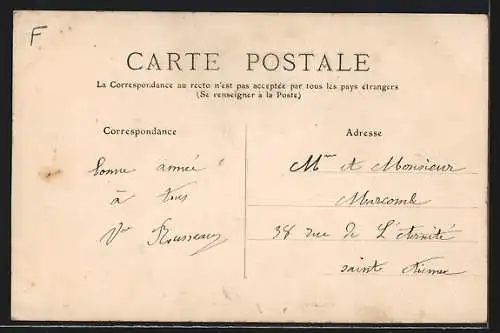 F
CARTE POSTALE
La Correspondance au recto n'est pas acceptée par tous les pays étrangers
(Se renseigner à la Poste)
Correspondance
Adresse
bonne année
à tous
Vve Rousseau
Mme et Monsieur
38 rue de L'éternité
saint